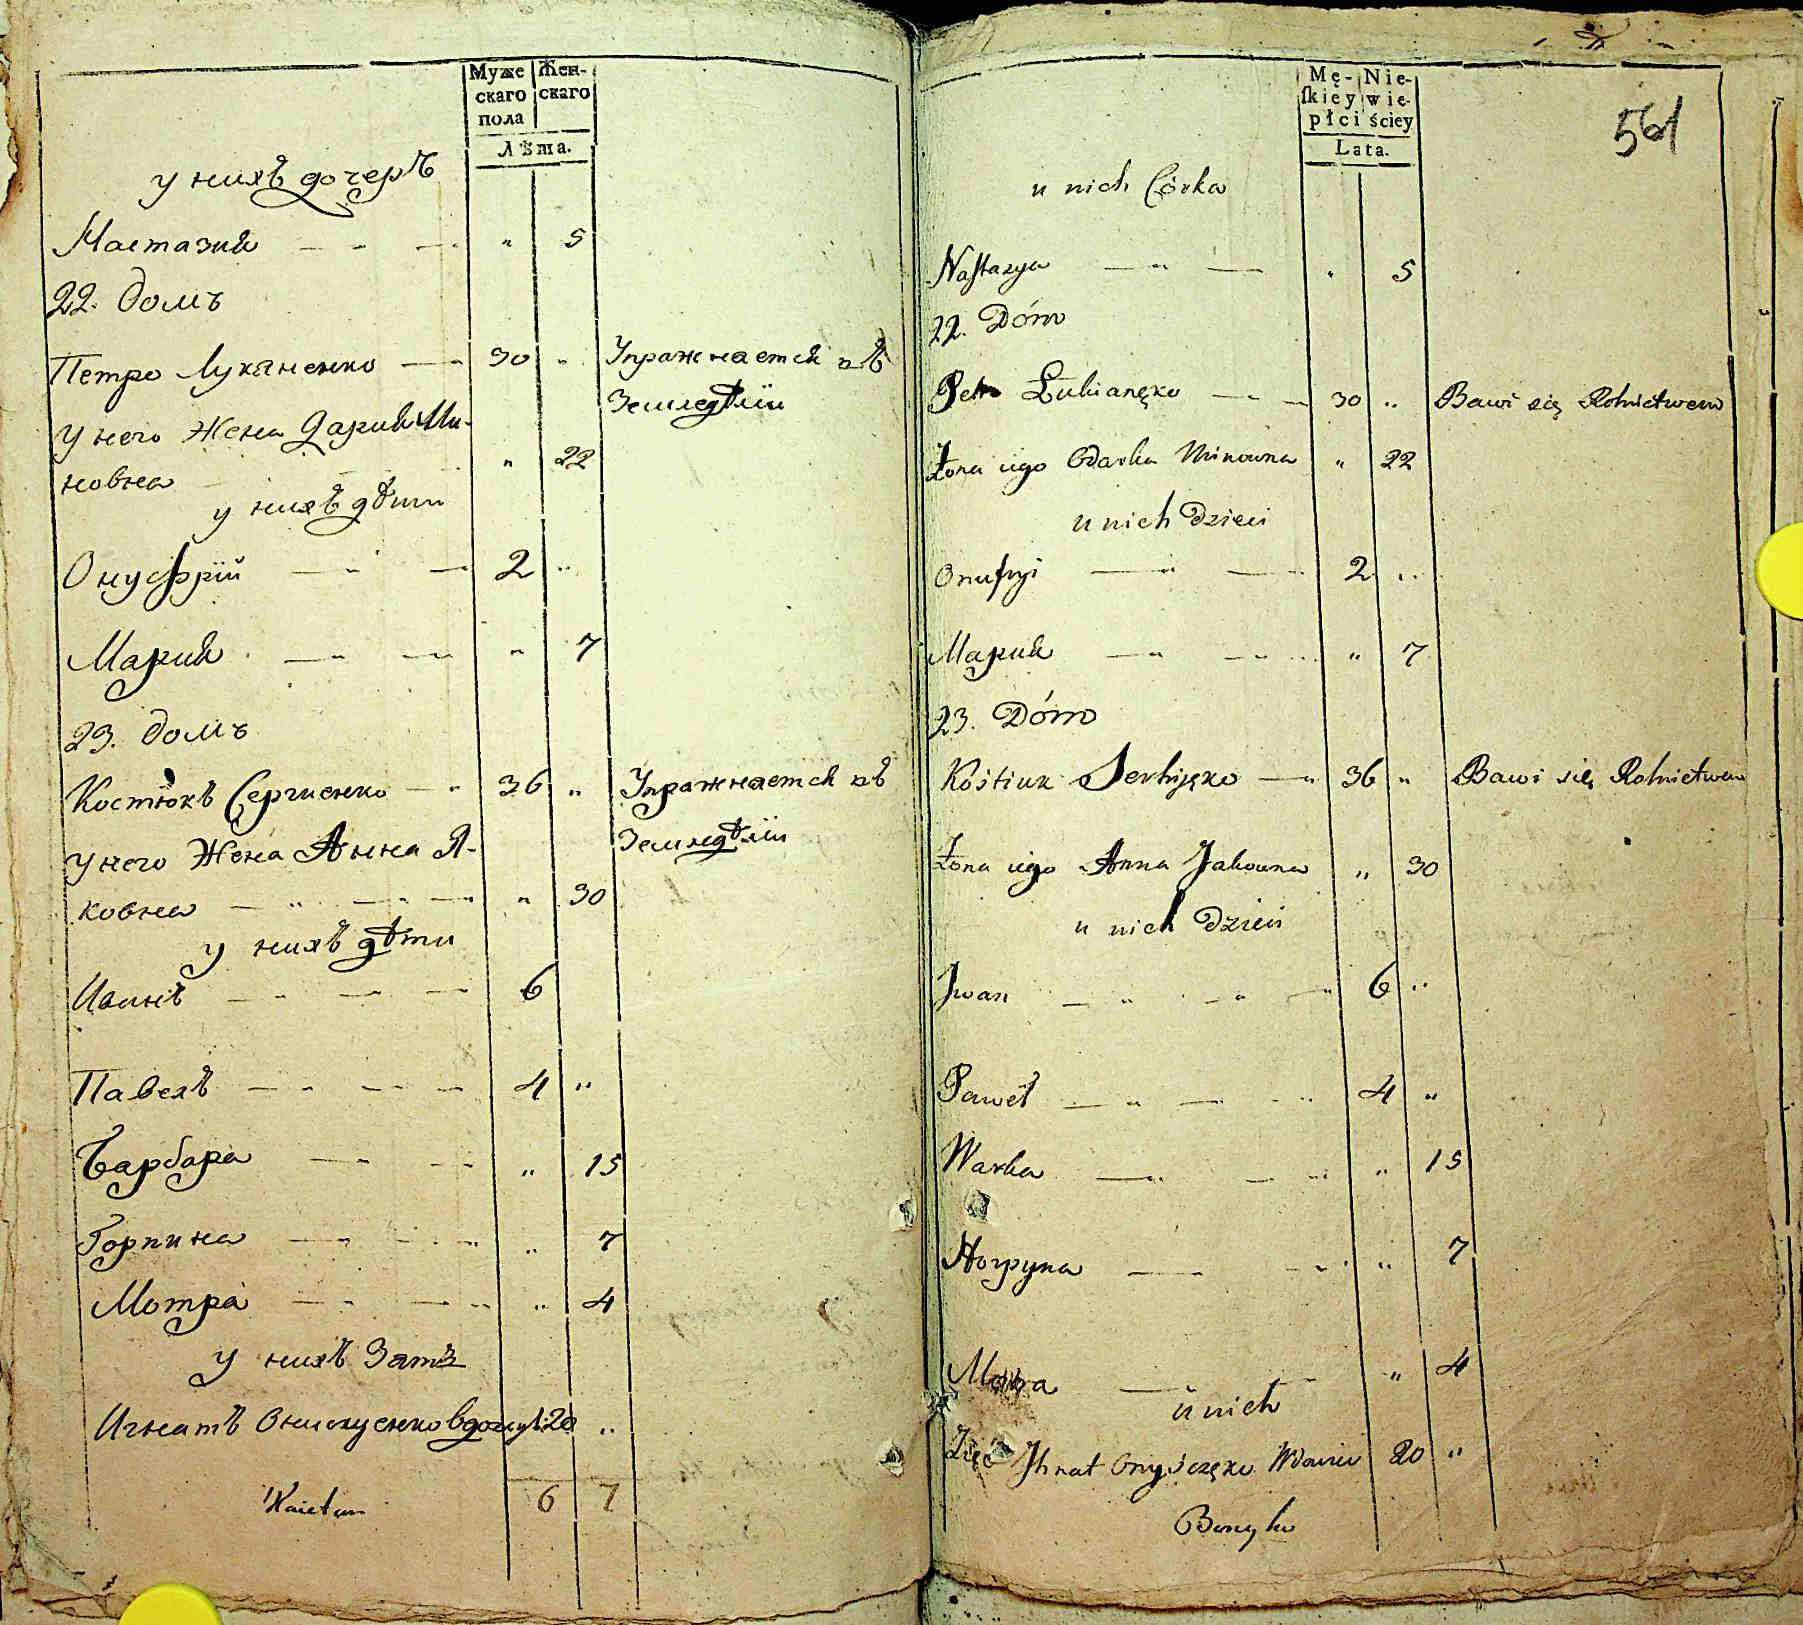 Муже Жен-
скаго скаго
пола
Лѣта.
у нихъ дочеръ
Настазия — " — " 5
22. домъ
Петро Лукяненко — " 30 " Упражнается въ
Земледѣлїи
У него Жена Дария Ми-
новна " 22
у нихъ дѣти
Онуфрїй — " — " 2 "
Мария — " — " " 7
23. домъ
Костюкъ Сергиенко — " 36 " Упражнается въ
Земледѣлїи
У него Жена Анна Я-
ковна — " — " " 30
у нихъ дѣти
Иванъ — " — " 6
Павелъ — " — " 4 "
Барбара — " — " " 15
Горпина — " — " " 7
Мотра — " — " " 4
у нихъ Зать
Игнатъ Онискусенко 20 "
Kaietan 6 7
Mę- Nie-
ſkiey wie-
płci ściey
Lata.
561
u nich Córka
Nastazya — " — " 5
22. Dóm
Petro Łukianęko — " — 30 " Bawi się Rolnictwem
Żona iego Odarka Minowna " 22
u nich Dzieci
Onufryi — " — " 2 "
Мария — " — " " 7
23. Dóm
Kostiuk Serhijęko — " 36 " Bawi się Rolnictwem
Żona iego Anna Jakowna " 30
u nich Dzieci
Jwan — " — " 6 "
Paweł — " — " 4 "
Warka — " — " " 15
Horpyna — — " " 7
Motra — " 4
u nich
Zięć Jhnat Onyśczęko 20 "